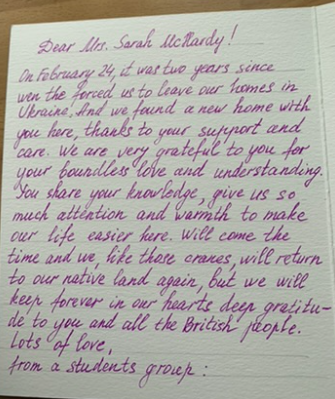 Dear Mrs. Sarah McHardy!
On February 24, it was two years since
wen the forced us to leave our homes in
Ukraine. And we found a new home with
you here, thanks to your support and
care. We are very grateful to you for
your boundless love and understanding.
You share your knowledge, give us so
much attention and warmth to make
our life easier here. Will come the
time and we, like those cranes, will return
to our native land again, but we will
keep forever in our hearts deep gratitu-
de to you and all the British people.
Lots of love,
from a students group: